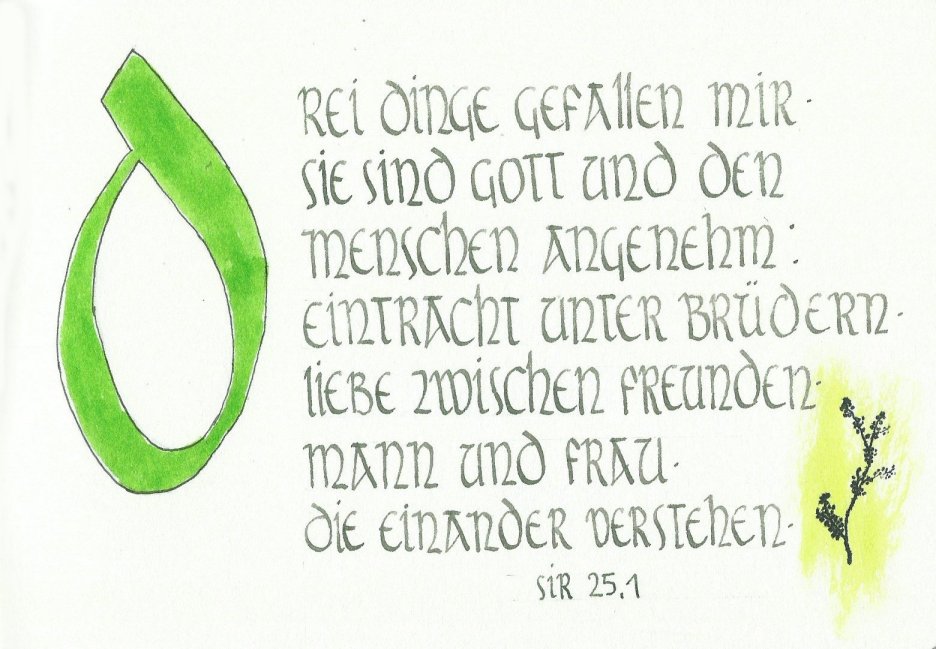 DREI DINGE GEFALLEN MIR·
SIE SIND GOTT UND DEN
MENSCHEN ANGENEHM:
EINTRACHT UNTER BRÜDERN·
LIEBE ZWISCHEN FREUNDEN·
MANN UND FRAU·
DIE EINANDER VERSTEHEN·
SIR 25.1